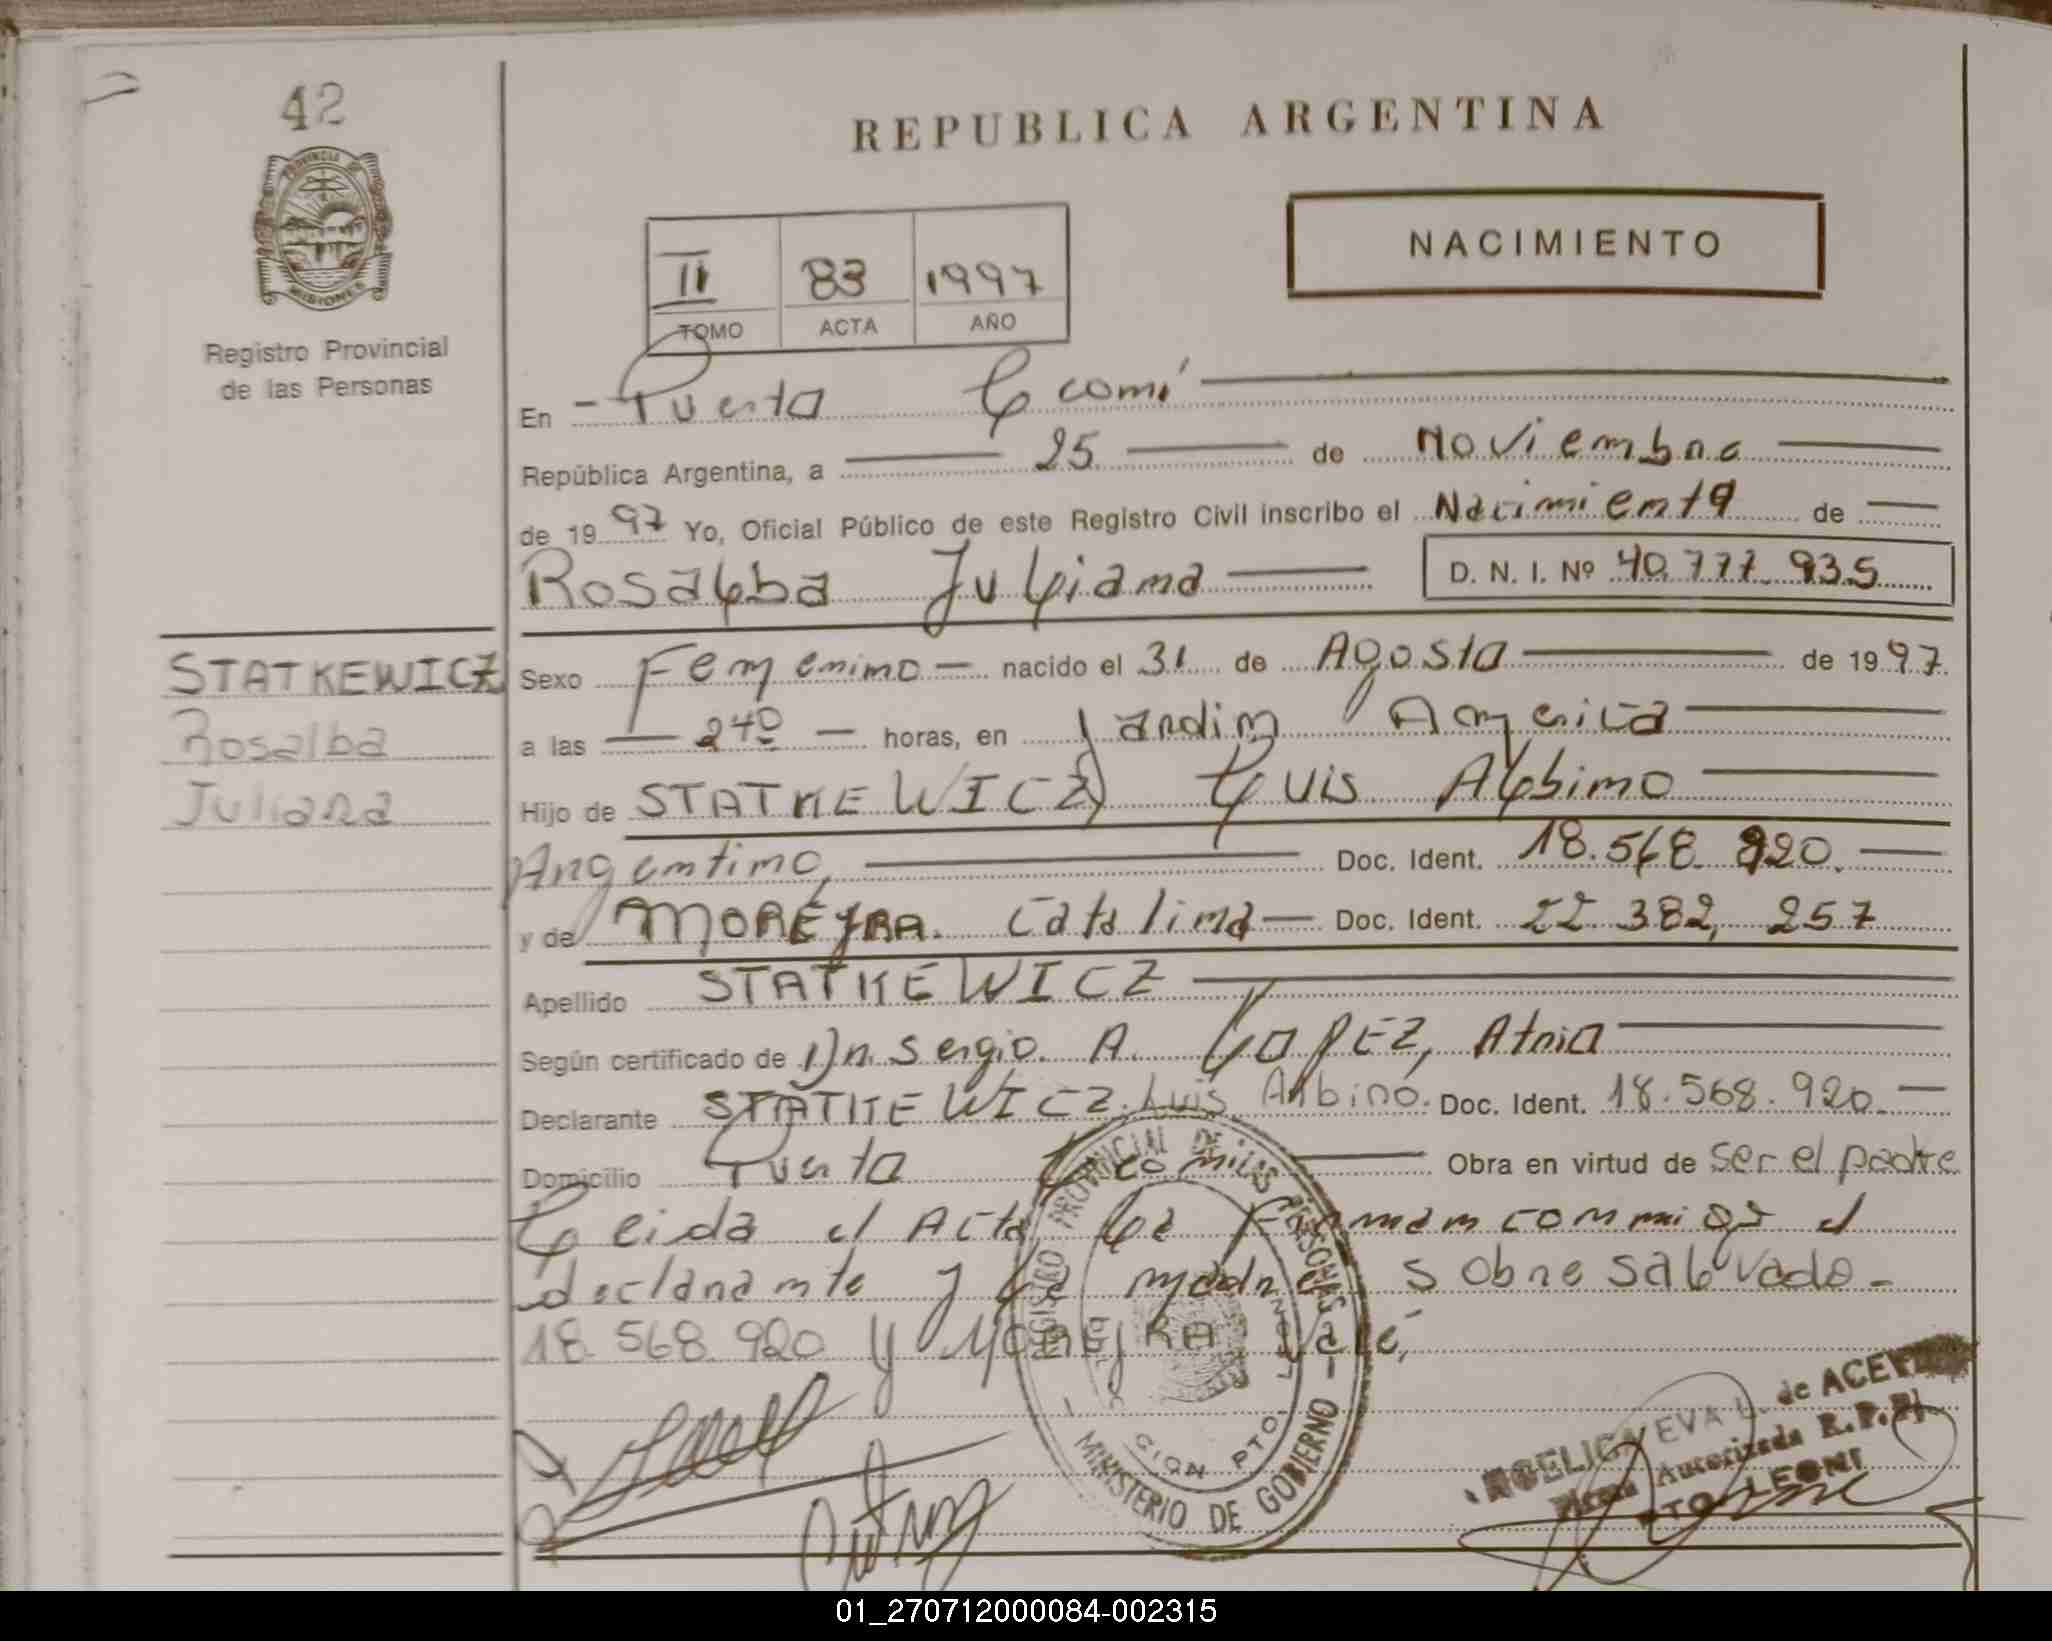 42
REPUBLICA ARGENTINA
PROVINCIA DE MISIONES
NACIMIENTO
II 83 1997
TOMO ACTA AÑO
Registro Provincial
de las Personas
En - Puerto Leoní
República Argentina, a 25 de Noviembre
de 1997 Yo, Oficial Público de este Registro Civil inscribo el Nacimiento de
Rosalba Juliana D. N. I. Nº 40.777.935
STATKEWICZ
Rosalba
Juliana
Sexo Femenino - nacido el 31 de Agosto de 1997
a las 240 horas, en Jardin America
Hijo de STATKEWICZ Luis Albino
Argentino, Doc. Ident. 18.568.920.
y de MOREYRA. Catalina Doc. Ident. 22.382.257
Apellido STATKEWICZ
Según certificado de Dr. Sergio. A. LOPEZ, Atria
Declarante STATKEWICZ. Luis Albino. Doc. Ident. 18.568.920.
Domicilio Puerto Leoni Obra en virtud de ser el padre
Leida el Acta, la Firman conmigo el
declarante y la madre sobresalvado-
18.568.920 y MOREYRA Vale,
REGISTRO PROVINCIAL DE LAS PERSONAS
MINISTERIO DE GOBIERNO
EVA L. de ACEVEDO
Autorizada R.P.P.
PTO. LEONI
01_270712000084-002315